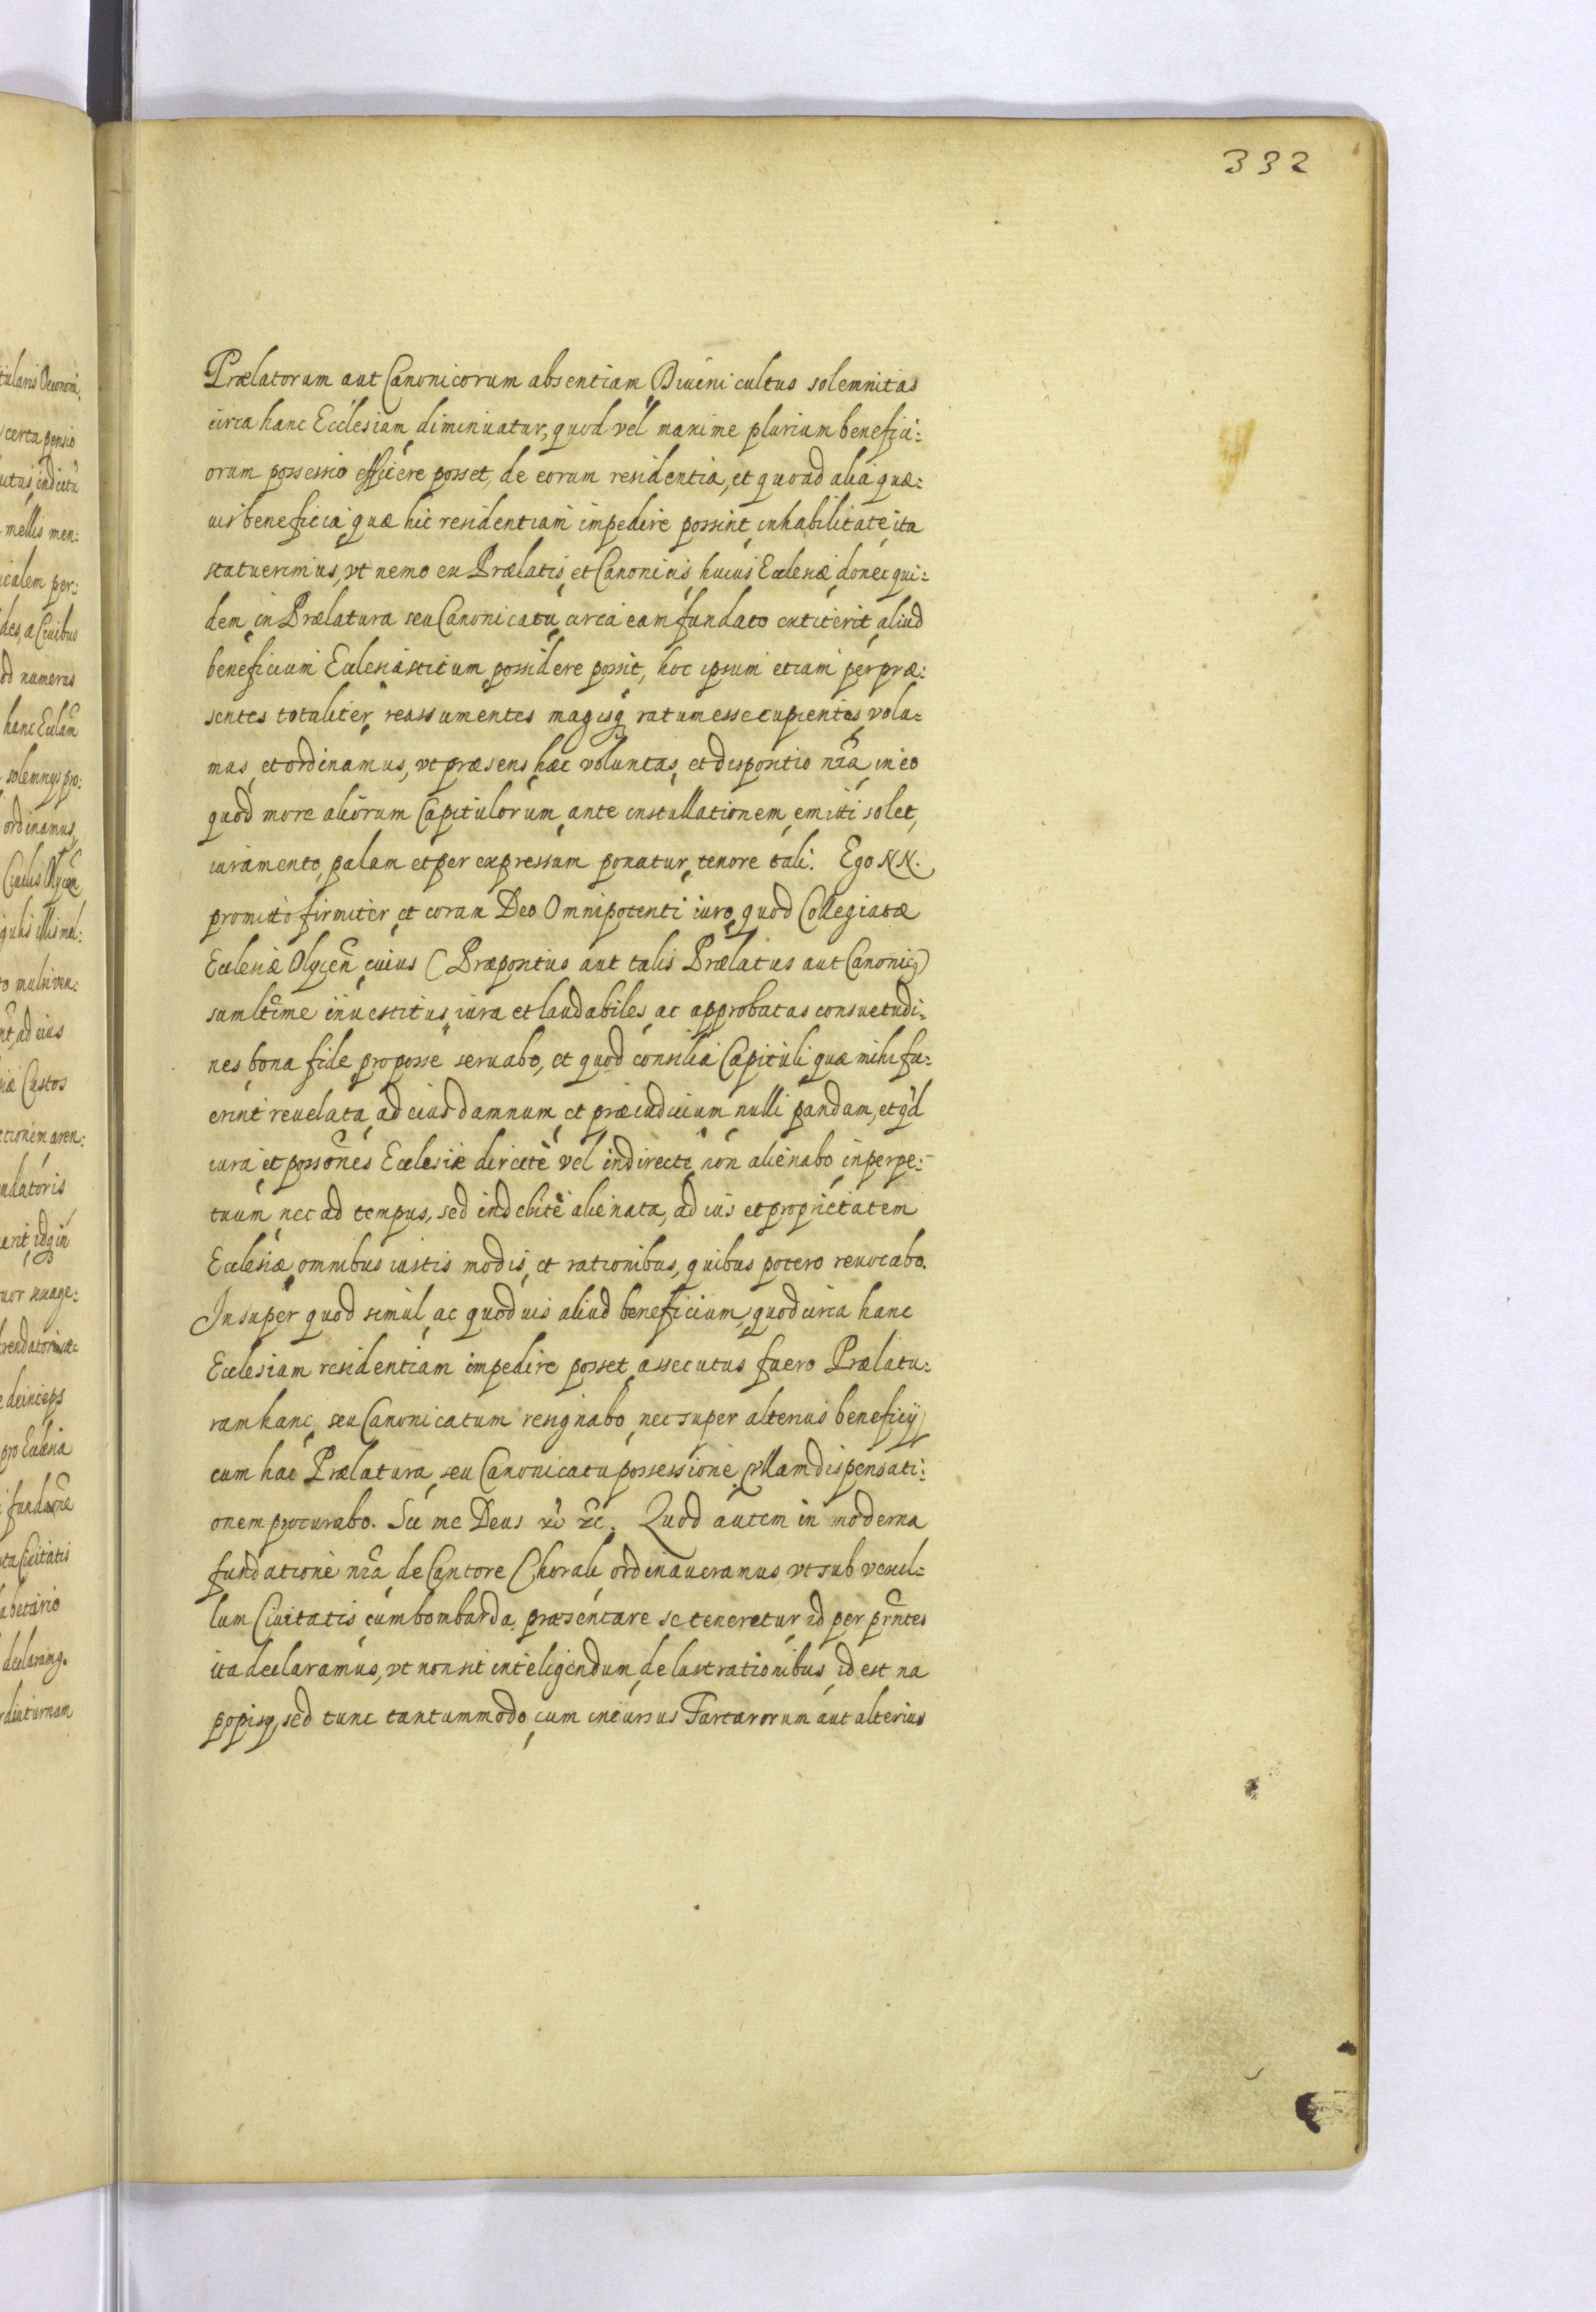 332
Prælatorum aut Canonicorum absentiam Diuini cultus solemnitas
circa hanc Ecclesiam diminuatur, quod vel maxime plurium benefici:
orum possessio efficere posset, de eorum residentia, et quoad alia quæ:
uis beneficia quæ hic residentiam impedire possint inhabilitate ita
statuerimus, vt nemo ex Prælatis et Canonicis huius Ecclesiæ donec qui:
dem in Prælatura seu Canonicatu circa eam fundato extiterit aliud
beneficium Ecclesiasticum possidere possit, hoc ipsum etiam per præ:
sentes totaliter reassumentes magisq ratum esse cupientes volu:
mus et ordinamus, vt præsens hæc voluntas et dispositio nrã in eo
quod more aliorum Capitulorum ante installationem emitti solet,
iuramento, palam et per expressum ponatur tenore tali. Ego NN.
promitto firmiter et coram Deo Omnipotenti iuro quod Collegiatæ
Ecclesiæ Olycen̄ cuius (Præpositus aut talis Prælatus aut Canonicq)
sum ltime inuestitus iura et laudabiles ac approbatas consuetudi:
nes bona fide pro posse seruabo, et quod consilia Capituli quæ mihi fu:
erint reuelata ad eius damnum et præiudicium nulli pandam, et q'd
iura et possones Ecclesiæ directè vel indirectè non alienabo in perpe:
tuum nec ad tempus, sed indebitè alienata, ad ius et proprietatem
Ecclesiæ omnibus iustis modis et rationibus, quibus potero reuocabo.
Insuper quod simul ac quoduis aliud beneficium, quod circa hanc
Ecclesiam residentiam impedire posset assecutus fuero Prælatu:
ram hanc seu Canonicatum resignabo nec super alterius beneficij
cum hac Prælatura seu Canonicatu possessione vllam dispensati:
onem procurabo. Sic me Deus &c &c. Quod autem in moderna
fundatione nrã de Cantore Chorali ordinaueramus vt sub vexil:
lum Ciuitatis cum bombarda præsentare se teneretur id per prñtes
ita declaramus, vt non sit inteligendum de lustrationibus id est na
popisy, sed tunc tantummodo cum incursus Tartarorum aut alterius